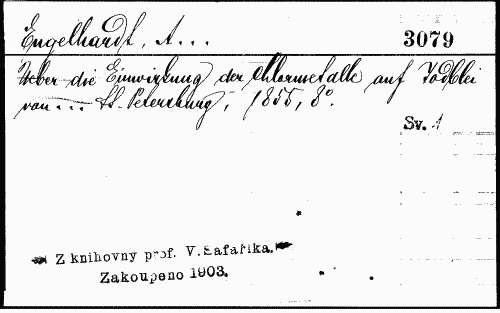 Engelhardt, A...
3079
Ueber die Einwirkung der Chlormetalle auf Jodblei
von... St. Petersburg, 1855, 8°.
Sv. 1
Z knihovny prof. V. Šafaříka.
Zakoupeno 1903.